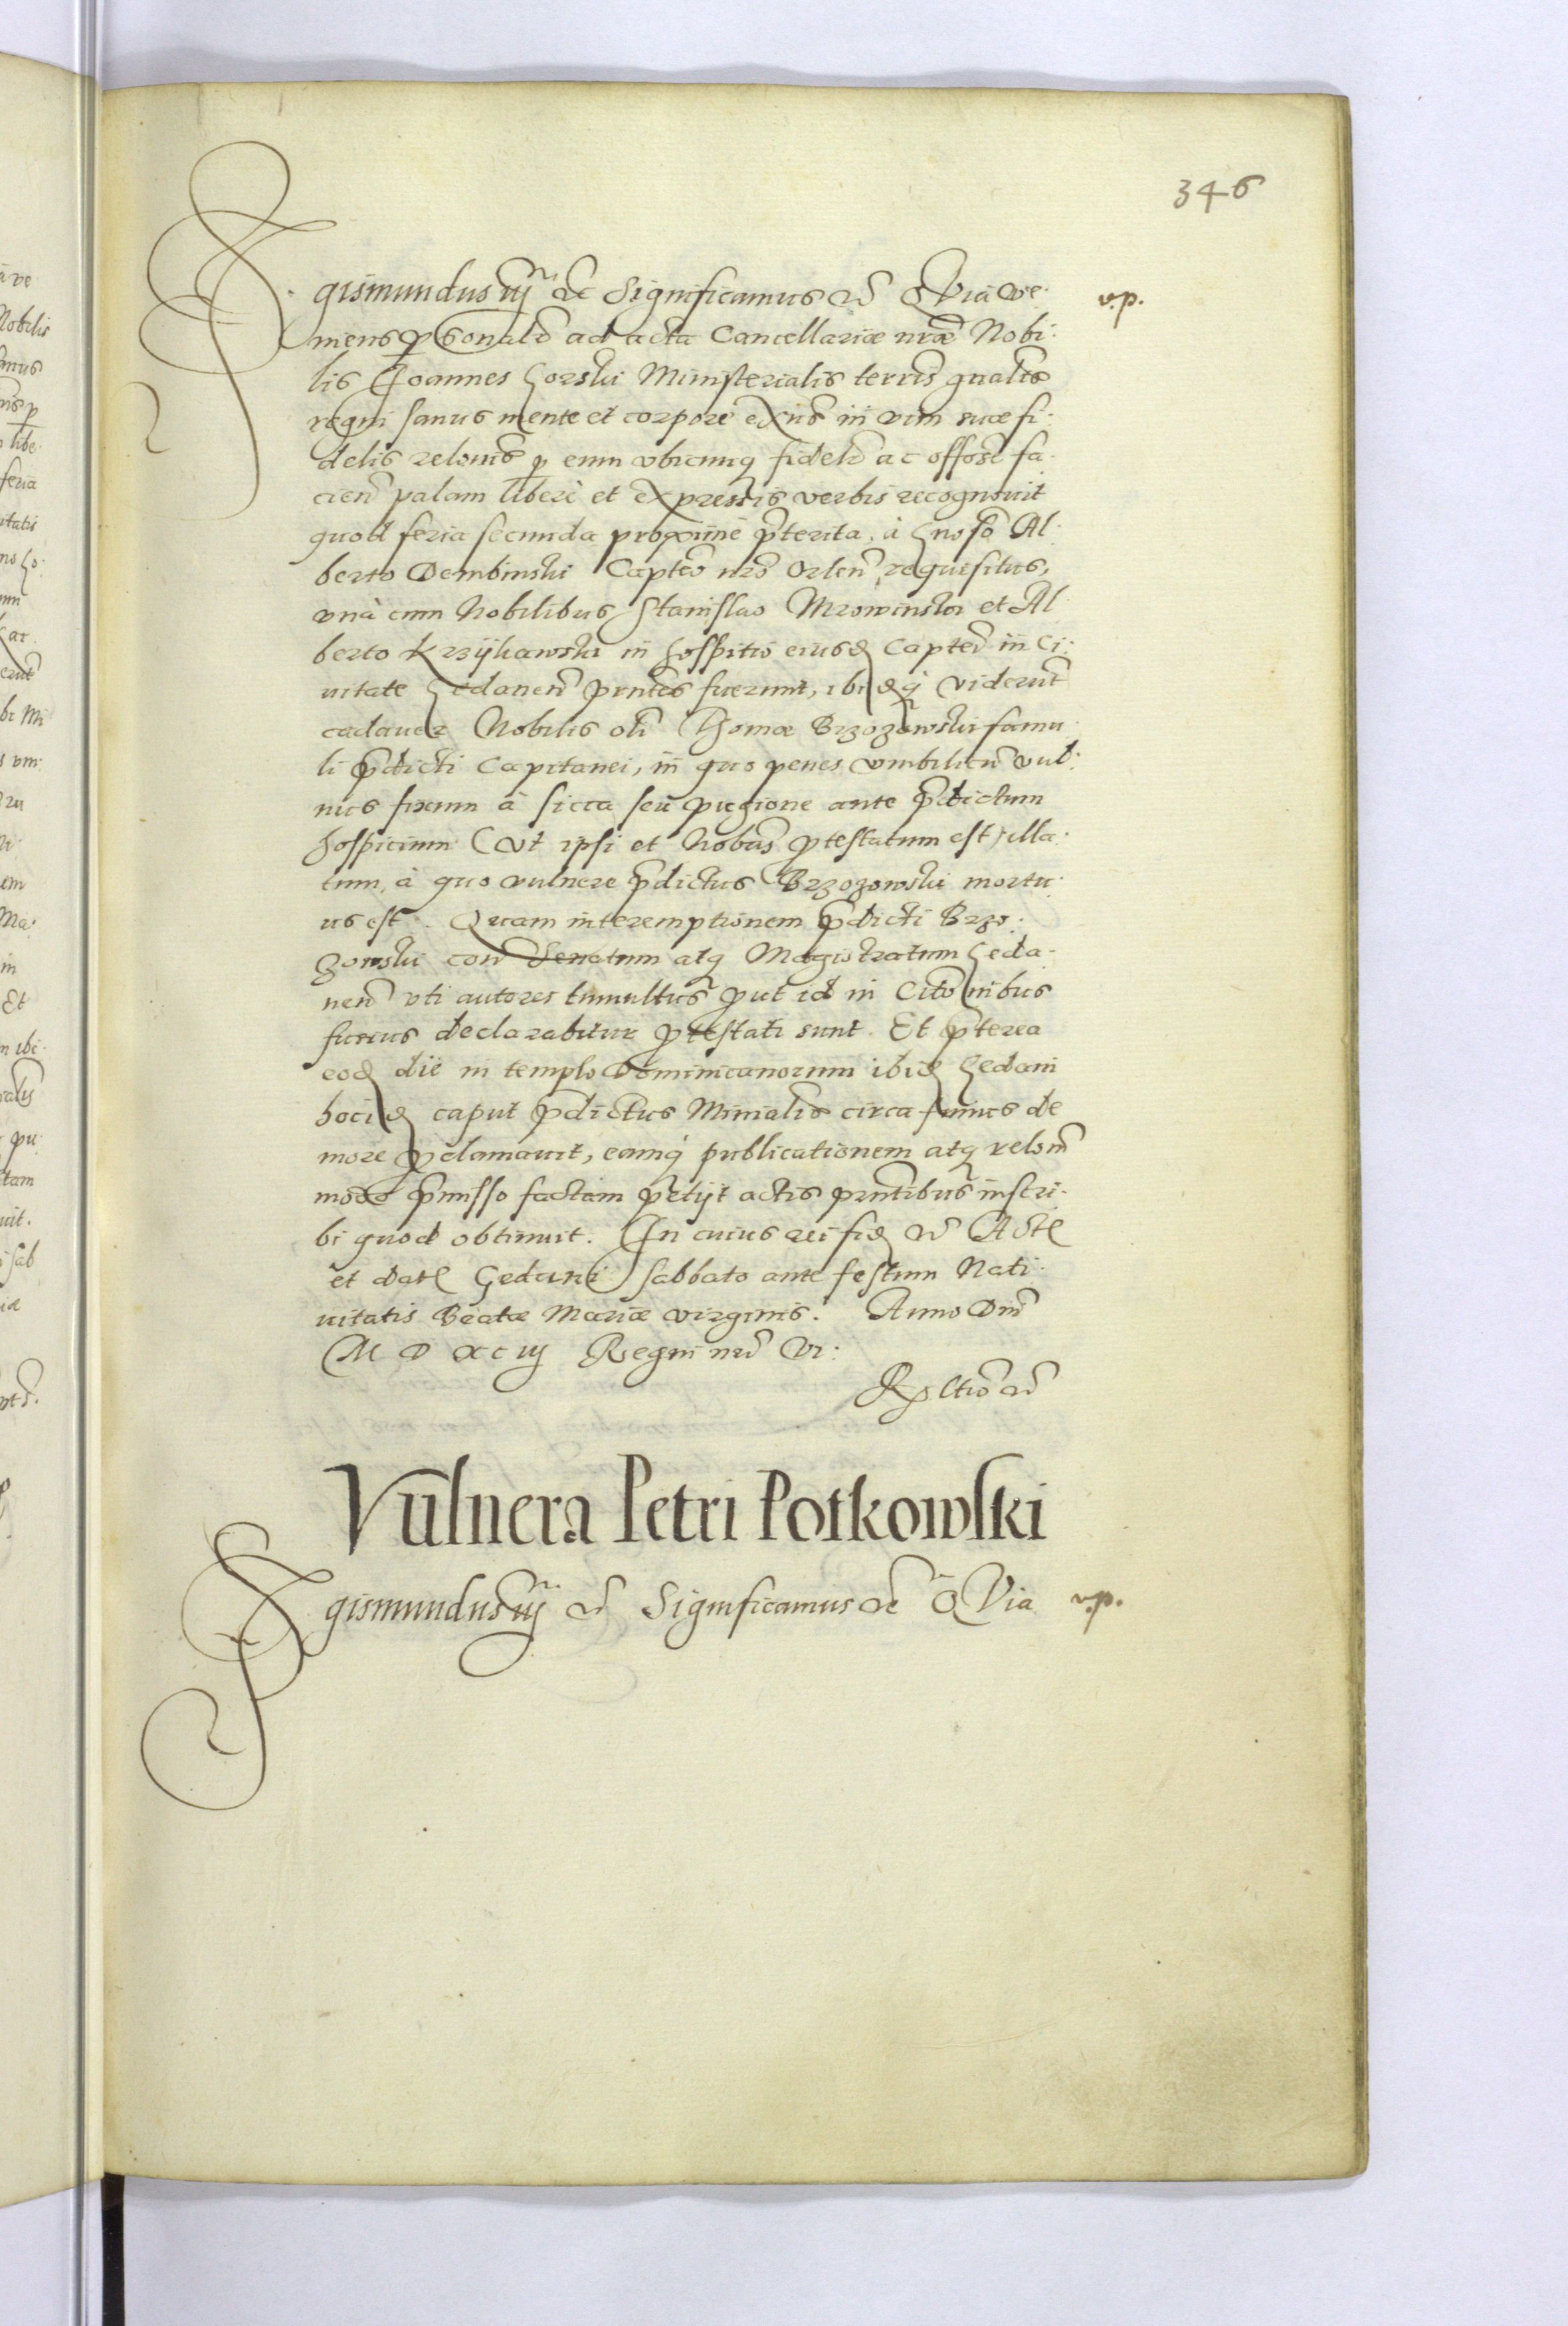 346
Sigismundus iij etc Significamus etc Quia ve-
v.p.
niens personalr ad acta Cancellariæ nræ Nobi-
lis Joannes Gorski Ministerialis terris gnalis
regni sanus mente et corpore exns in vim suæ fi-
delis relonis p eum vbicunq fidelr ac offose fa-
cien palam liberè et expressis verbis recognouit
quod feria secunda proxime pterita, à Gnoso Al-
berto Dembinski Capteo nro Orlen requisitus,
vnà cum Nobilibus Stanislao Mrowinski et Al-
berto Krzykawski in hospitio eiusd Captei in Ci-
uitate Gedanen pntes fuerunt, ibidq viderunt
cadauer Nobilis oli Thomæ Brzozowski famu-
li pdicti Capitanei, in quo penes vmbilicu vul-
nus fixum à sicca seu pugione ante pdictum
hospicium (vt ipsi et Nobis ptestatum est) illa-
tum, à quo vulnere pdictus Brzozowski mortu-
us est. Quam interemptionem pdicti Brzo-
zowski con Senatum atq Magistratum Geda-
nen vti autores tumultus put id in Citonibus
fusius declarabitur ptestati sunt. Et pterea
eod die in templo Dominicanorum ibid Gedani
hocid caput pdictus Minialis circa funus de
more pclamauit, eamq publicationem atq relom
modo pmisso factam petijt actis pntibus inscri-
bi quod obtinuit. In cuius rei fid etc Act
et dat Gedani sabbato ante festum Nati-
uitatis Beatæ Mariæ virginis. Anno Dni
M D XC iij Regni nri Vi:
Vulnera Petri Potkowski
Sigismundus iij etc Significamus etc Quia
v.p.